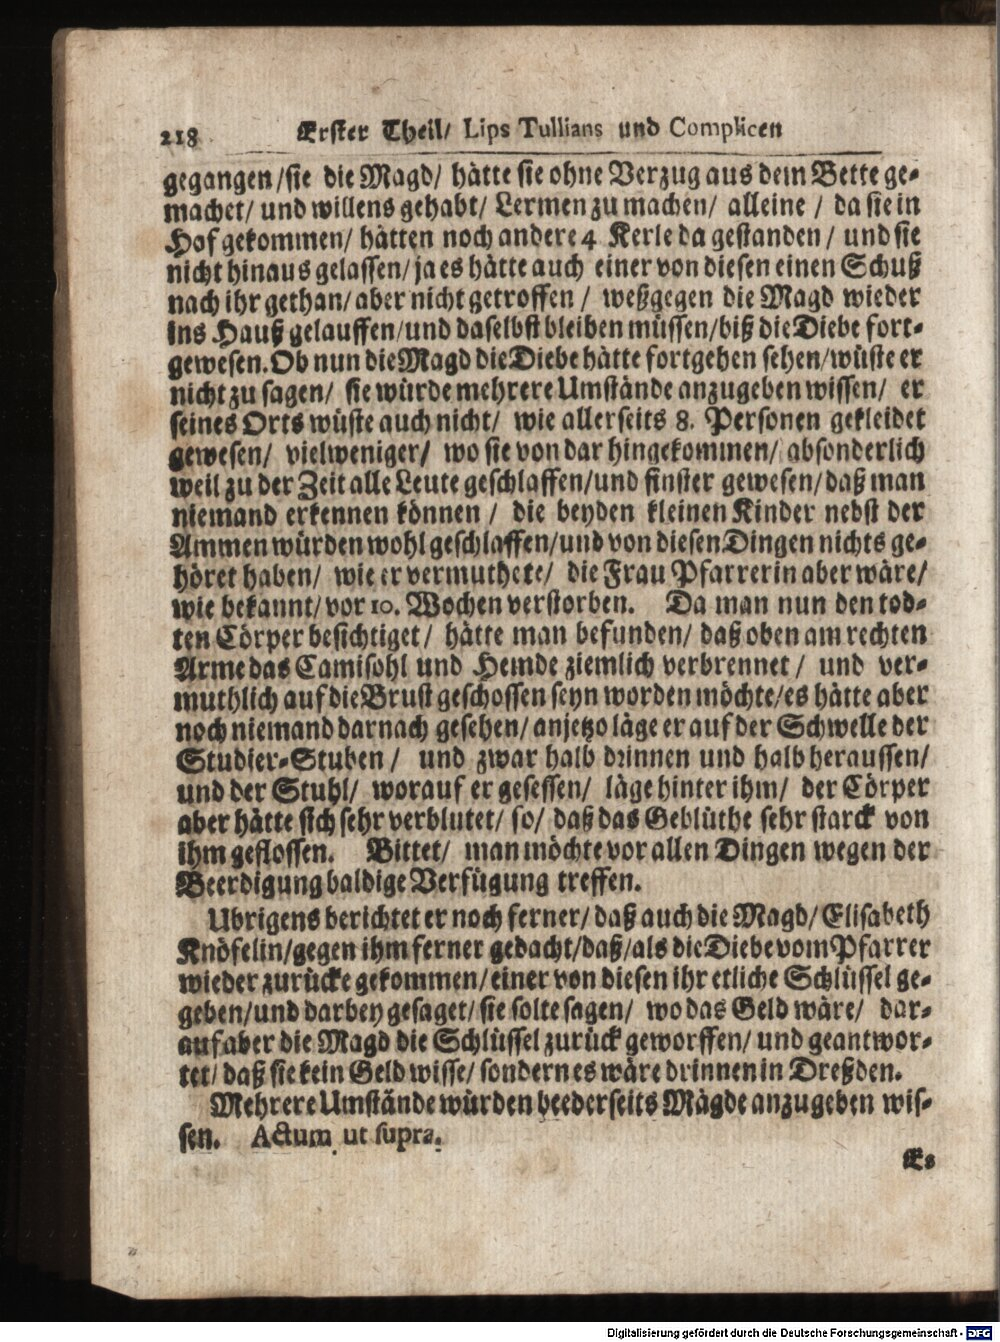 218 Erster Theil/ Lips Tullians und Complicen
gegangen/sie die Magd/ hätte sie ohne Verzug aus dem Bette ge-
machet/ und willens gehabt/ Lermen zu machen/ alleine / da sie in
Hof gekommen/ hätten noch andere 4 Kerle da gestanden / und sie
nicht hinaus gelassen/ ja es hätte auch einer von diesen einen Schuß
nach ihr gethan/ aber nicht getroffen / weßgegen die Magd wieder
ins Hauß gelauffen/und daselbst bleiben müssen/biß die Diebe fort-
gewesen. Ob nun die Magd die Diebe hätte fortgehen sehen/wüste er
nicht zu sagen/ sie würde mehrere Umstände anzugeben wissen/ er
seines Orts wüste auch nicht/ wie allerseits 8. Personen gekleidet
gewesen/ vielweniger/ wo sie von dar hingekommen/ absonderlich
weil zu der Zeit alle Leute geschlaffen/und finster gewesen/daß man
niemand erkennen können / die beyden kleinen Kinder nebst der
Ammen würden wohl geschlaffen/und von diesen Dingen nichts ge-
höret haben/ wie er vermuthete/ die Frau Pfarrerin aber wäre/
wie bekannt/ vor 10. Wochen verstorben. Da man nun den tod-
ten Cörper besichtiget/ hätte man befunden/ daß oben am rechten
Arme das Camisohl und Hemde ziemlich verbrennet / und ver-
muthlich auf die Brust geschossen seyn worden möchte/es hätte aber
noch niemand darnach gesehen/ anjetzo läge er auf der Schwelle der
Studier-Stuben / und zwar halb drinnen und halb heraussen/
und der Stuhl/ worauf er gesessen/ läge hinter ihm/ der Cörper
aber hätte sich sehr verblutet/ so/ daß das Geblüthe sehr starck von
ihm geflossen. Bittet/ man möchte vor allen Dingen wegen der
Beerdigung baldige Verfügung treffen.
Ubrigens berichtet er noch ferner/ daß auch die Magd/ Elisabeth
Knöfelin/gegen ihm ferner gedacht/daß/als die Diebe vom Pfarrer
wieder zurücke gekommen/einer von diesen ihr etliche Schlüssel ge-
geben/und darbey gesaget/ sie solte sagen/ wo das Geld wäre/ dar-
auf aber die Magd die Schlüssel zurück geworffen/ und geantwor-
tet/ daß sie kein Geld wisse/ sondern es wäre drinnen in Dreßden.
Mehrere Umstände würden beederseits Mägde anzugeben wis-
sen. Actum ut supra.
Es
Digitalisierung gefördert durch die Deutsche Forschungsgemeinschaft - DFG